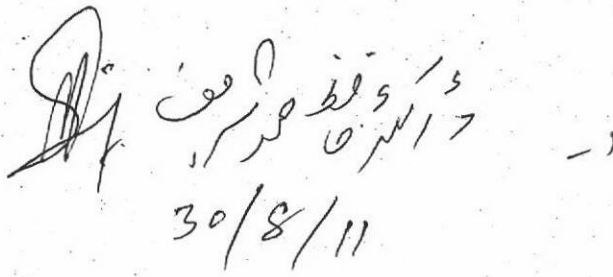 ڈاکٹر حافظ محمد شریف
30/8/11